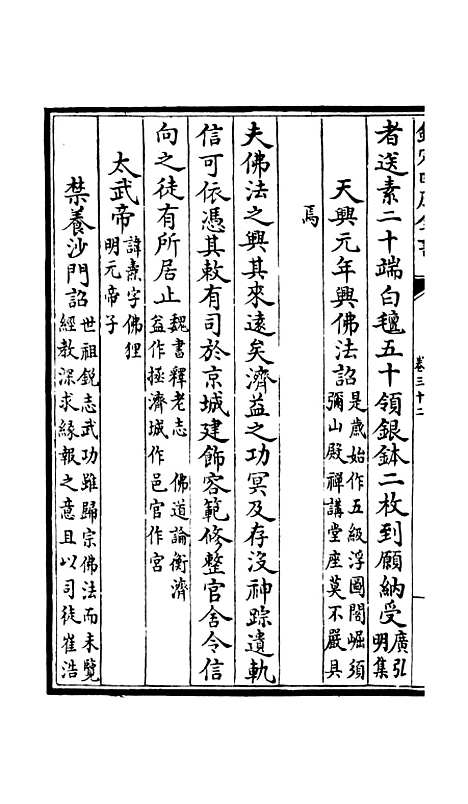 欽定四庫全書
卷三十二
者送素二十端白氊五十領銀鉢二枚到願納受廣弘
明集
天興元年興佛法詔是歲始作五級浮圖闍崛須
彌山殿禪講堂座莫不嚴具
焉
夫佛法之興其來遠矣濟益之功冥及存沒神踪遺軌
信可依憑其敕有司於京城建飾容範修整官舍令信
向之徒有所居止魏書釋老志 佛道論衡濟
益作拯濟城作邑官作宮
太武帝諱燾字佛狸
明元帝子
禁養沙門詔世祖鋭志武功雖歸宗佛法而未覽
經教深求緣報之意且以司徒崔浩